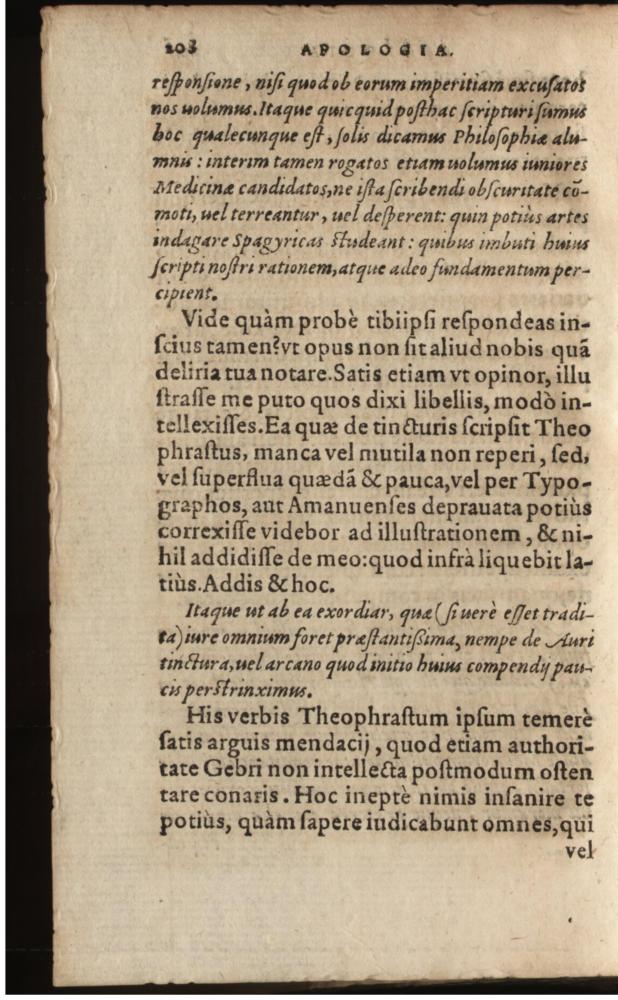 208 APOLOGIA.
responsione, nisi quod ob eorum imperitiam excusatos
nos uolumus. Itaque quicquid posthac scripturi sumus
hoc qualecunque est, solis dicamus Philosophiæ alu-
mnis : interim tamen rogatos etiam uolumus iuniores
Medicinæ candidatos, ne ista scribendi obscuritate cō-
moti, uel terreantur, uel desperent: quin potiùs artes
indagare Spagyricas studeant : quibus imbuti huius
scripti nostri rationem, atque adeo fundamentum per-
cipient.
Vide quàm probè tibiipsi respondeas in-
scius tamen? vt opus non sit aliud nobis quã
deliria tua notare. Satis etiam vt opinor, illu
strasse me puto quos dixi libellis, modò in-
tellexisses. Ea quæ de tincturis scripsit Theo
phrastus, manca vel mutila non reperi, sed,
vel superflua quædã & pauca, vel per Typo-
graphos, aut Amanuenses deprauata potiùs
correxisse videbor ad illustrationem, & ni-
hil addidisse de meo: quod infrà liquebit la-
tiùs. Addis & hoc.
Itaque ut ab ea exordiar, quæ (si uerè esset tradi-
ta) iure omnium foret præstantißima, nempe de Auri
tinctura, uel arcano quod initio huius compendij pau-
cis perstrinximus.
His verbis Theophrastum ipsum temerè
satis arguis mendacij, quod etiam authori-
tate Gebri non intellecta postmodum osten
tare conaris. Hoc ineptè nimis insanire te
potiùs, quàm sapere iudicabunt omnes, qui
vel